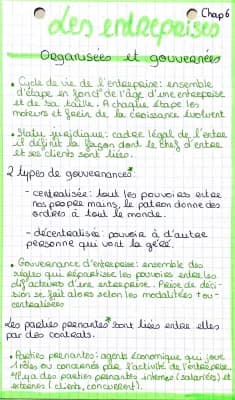 Chap 6
Les entreprises
Organisées et gouvernées
• Cycle de vie de l'entreprise : ensemble
d'étape en fonct° de l'âge d'une entreprise
et de sa taille. A chaque étape les
moteurs et frein de la croissance évoluent
• Statut juridique : cadre légal de l'entre
il définit la façon dont le chef d'entre
et ses clients sont liés.
2 types de gouvernances*
- centralisée : tout les pouvoirs entre
nos propre mains, le patron donne des
ordres à tout le monde.
- décentralisée : pouvoir à d'autre
personne qui vont la géré.
• Gouvernance d'entreprise : ensemble des
règles qui répartisse les pouvoirs entre les
dif acteurs d'une entreprise. Prise de déci-
sion se fait alors selon les modalités + ou -
centralisées
Les parties prenantes* sont liés entre elles
par des contrats.
• Parties prenantes : agents économique qui joue
1 rôles ou concernés par l'activité de l'entreprise.
Il y a des parties prenantes internes (salariées) et
externes (clients, concurrent).